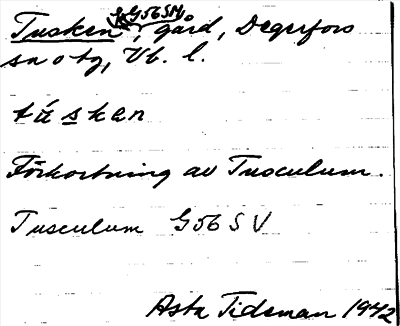 Tusken G56SM, gård, Degerfors
sn o tg, Vb. l.
túsken
Förkortning av Tusculum.
Tusculum G56SV
Asta Tideman 1942